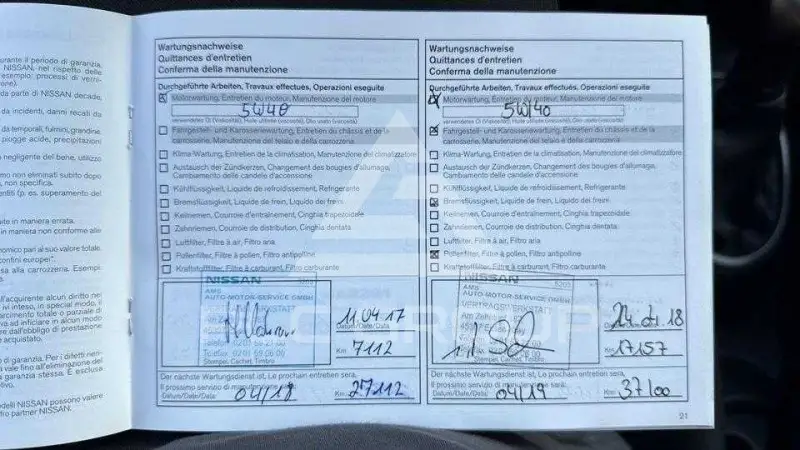 urante il periodo di garanzia,
NISSAN, nel rispetto delle
esempio, processi di verni-
da parte di NISSAN decade,
da incidenti, danni recati da
da temporali, fulmini, grandine,
piogge acide, precipitazioni
negligente del bene, utilizzo
mo non eliminati subito dopo
non specifica.
entiti (p. es. superamento del
ite in maniera errata.
in maniera non conforme alle
nomico pari al suo valore totale.
confini europei".
sa alla carrozzeria. Esempi
all'acquirente alcun diritto nei
vi intesi, in special modo, il
o di garanzia. Per i difetti
una vale fino all'eliminazione del
garanzia stessa. È esclusa
delli NISSAN possono valere
partner NISSAN.
Wartungsnachweise
Quittances d'entretien
Conferma della manutenzione
Durchgeführte Arbeiten, Travaux effectués, Operazioni eseguite
Motorwartung, Entretien du moteur, Manutenzione del motore
5W40
verwendetes Öl (Viscosität), Huile utilisée (viscosité), Olio usato (viscosità)
Fahrgestell- und Karosseriewartung, Entretien du châssis et de la
carrosserie, Manutenzione del telaio e della carrozzeria
Klima-Wartung, Entretien de la climatisation, Manutenzione del climatizzatore
Austausch der Zündkerzen, Changement des bougies d'allumage,
Cambiamento delle candele d'accensione
Kühlflüssigkeit, Liquide de refroidissement, Refrigerante
Bremsflüssigkeit, Liquide de frein, Liquido dei freini
Keilriemen, Courroie d'entraînement, Cinghia trapezoidale
Zahnriemen, Courroie de distribution, Cinghia dentata
Luftfilter, Filtre à air, Filtro aria
Pollenfilter, Filtre à pollen, Filtro antipolline
Kraftstofffilter, Filtre à carburant, Filtro carburante
NISSAN
AMS
AUTO-MOTOR-SERVICE GMBH
Stempel, Cachet, Timbro
11.04.17
Datum/Date/Data
Km 7112
Der nächste Wartungsdienst ist, Le prochain entretien sera,
Il prossimo servizio di manutenzione sarà:
Datum/Date/Data: 04/18 Km 27112
Wartungsnachweise
Quittances d'entretien
Conferma della manutenzione
Durchgeführte Arbeiten, Travaux effectués, Operazioni eseguite
Motorwartung, Entretien du moteur, Manutenzione del motore
5W40
verwendetes Öl (Viscosität), Huile utilisée (viscosité), Olio usato (viscosità)
Fahrgestell- und Karosseriewartung, Entretien du châssis et de la
carrosserie, Manutenzione del telaio e della carrozzeria
Klima-Wartung, Entretien de la climatisation, Manutenzione del climatizzatore
Austausch der Zündkerzen, Changement des bougies d'allumage,
Cambiamento delle candele d'accensione
Kühlflüssigkeit, Liquide de refroidissement, Refrigerante
Bremsflüssigkeit, Liquide de frein, Liquido dei freini
Keilriemen, Courroie d'entraînement, Cinghia trapezoidale
Zahnriemen, Courroie de distribution, Cinghia dentata
Luftfilter, Filtre à air, Filtro aria
Pollenfilter, Filtre à pollen, Filtro antipolline
Kraftstofffilter, Filtre à carburant, Filtro carburante
NISSAN
AMS
AUTO-MOTOR-SERVICE GMBH
VERTRAGSWERKSTATT
Stempel, Cachet, Timbro
Datum/Date/Data
Km 17157
Der nächste Wartungsdienst ist, Le prochain entretien sera,
Il prossimo servizio di manutenzione sarà:
Datum/Date/Data: 04/19 Km 37100
21